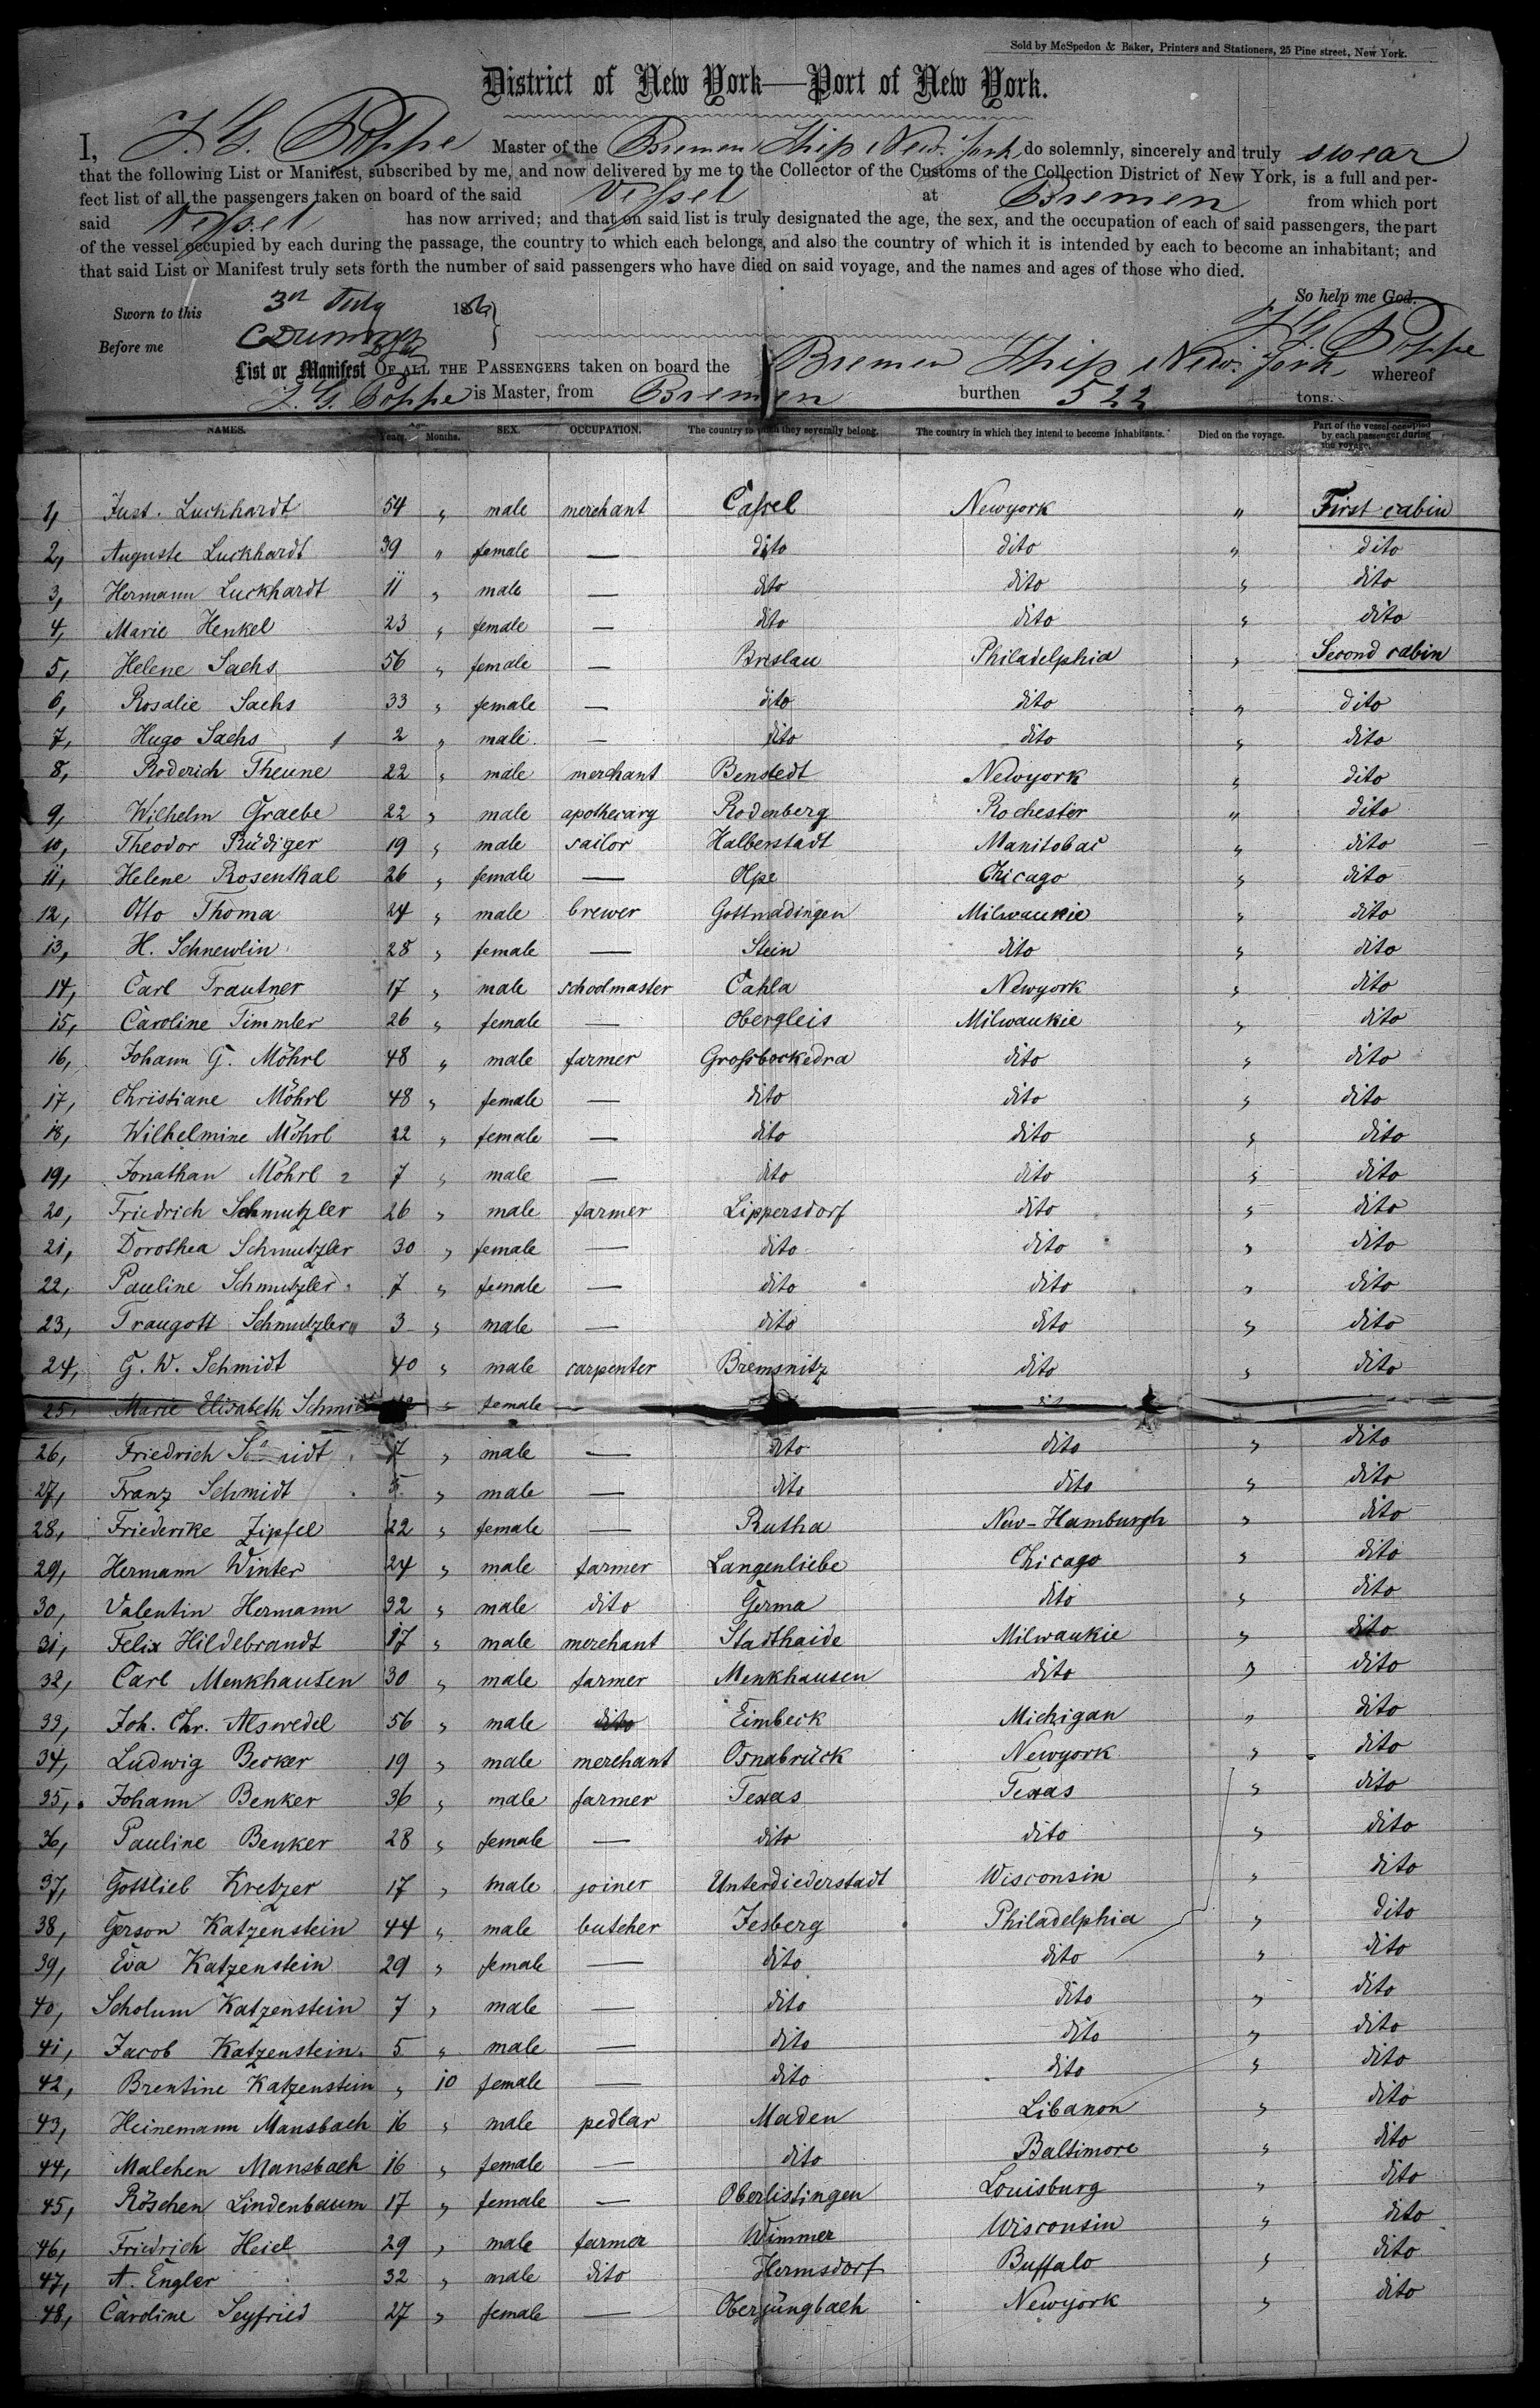 Sold by McSpedon & Baker, Printers and Stationers, 25 Pine street, New York.
District of New York—Port of New York.
I, J. G. Poppe Master of the Bremen Ship New York, do solemnly, sincerely and truly swear
that the following List or Manifest, subscribed by me, and now delivered by me to the Collector of the Customs of the Collection District of New York, is a full and per-
fect list of all the passengers taken on board of the said Vessel at Bremen from which port
said Vessel has now arrived; and that on said list is truly designated the age, the sex, and the occupation of each of said passengers, the part
of the vessel occupied by each during the passage, the country to which each belongs, and also the country of which it is intended by each to become an inhabitant; and
that said List or Manifest truly sets forth the number of said passengers who have died on said voyage, and the names and ages of those who died.
So help me God.
Sworn to this 3rd July 186
J. G. Poppe
Before me
List or Manifest OF ALL THE PASSENGERS taken on board the Bremen Ship New York, whereof
J. G. Poppe is Master, from Bremen burthen 522 tons.
NAMES. Age. Years. Months. SEX. OCCUPATION. The country to which they severally belong. The country in which they intend to become inhabitants. Died on the voyage. Part of the vessel occupied by each passenger during the voyage.
1, Just. Luckhardt 54 " male merchant Cassel Newyork " First cabin
2, Auguste Luckhardt 39 " female — dito dito " dito
3, Hermann Luckhardt 11 " male — dito dito " dito
4, Marie Henkel 23 " female — dito dito " dito
5, Helene Sachs 56 " female — Breslau Philadelphia " Second cabin
6, Rosalie Sachs 33 " female — dito dito " dito
7, Hugo Sachs 1 2 " male — dito dito " dito
8, Roderich Theune 22 " male merchant Benstedt Newyork " dito
9, Wilhelm Graebe 22 " male apothecary Rodenberg Rochester " dito
10, Theodor Rüdiger 19 " male sailor Halberstadt Manitobac " dito
11, Helene Rosenthal 26 " female — Olpe Chicago " dito
12, Otto Thoma 24 " male brewer Gottmadingen Milwaukie " dito
13, H. Schnewlin 28 " female — Stein dito " dito
14, Carl Trautner 17 " male schoolmaster Cahla Newyork " dito
15, Caroline Timmler 26 " female — Obergleis Milwaukie " dito
16, Johann G. Möhrl 48 " male farmer Grossbockedra dito " dito
17, Christiane Möhrl 48 " female — dito dito " dito
18, Wilhelmine Möhrl 22 " female — dito dito " dito
19, Jonathan Möhrl 2 7 " male — dito dito " dito
20, Friedrich Schmutzler 26 " male farmer Lippersdorf dito " dito
21, Dorothea Schmutzler 30 " female — dito dito " dito
22, Pauline Schmutzler 7 " female — dito dito " dito
23, Traugott Schmutzler 3 " male — dito dito " dito
24, G. W. Schmidt 40 " male carpenter Bremsnitz dito " dito
25, Marie Elisabeth Schmidt " female —
26, Friedrich Schmidt 7 " male — dito dito " dito
27, Franz Schmidt 5 " male — dito dito " dito
28, Friederike Zipfel 22 " female — Rutha New-Hamburgh " dito
29, Hermann Winter 24 " male farmer Langenliebe Chicago " dito
30, Valentin Hermann 32 " male dito Germa dito " dito
31, Felix Hildebrandt 17 " male merchant Stadthaide Milwaukie " dito
32, Carl Menkhausen 30 " male farmer Menkhausen dito " dito
33, Joh. Chr. Alswedel 56 " male dito Eimbeck Michigan " dito
34, Ludwig Becker 19 " male merchant Osnabrück Newyork " dito
35, Johann Benker 36 " male farmer Texas Texas " dito
36, Pauline Benker 28 " female — dito dito " dito
37, Gottlieb Kretzer 17 " male joiner Unterdiederstadt Wisconsin " dito
38, Gerson Katzenstein 44 " male butcher Jesberg Philadelphia " dito
39, Eva Katzenstein 29 " female — dito dito " dito
40, Scholum Katzenstein 7 " male — dito dito " dito
41, Jacob Katzenstein 5 " male — dito dito " dito
42, Brentine Katzenstein " 10 female — dito dito " dito
43, Heinemann Mansbach 16 " male pedlar Maden Libanon " dito
44, Malchen Mansbach 16 " female — dito Baltimore " dito
45, Röschen Lindenbaum 17 " female — Oberlistingen Louisburg " dito
46, Friedrich Heiel 29 " male farmer Wimmer Wisconsin " dito
47, A. Engler 32 " male dito Hermsdorf Buffalo " dito
48, Caroline Seyfried 27 " female — Oberjüngbach Newyork " dito